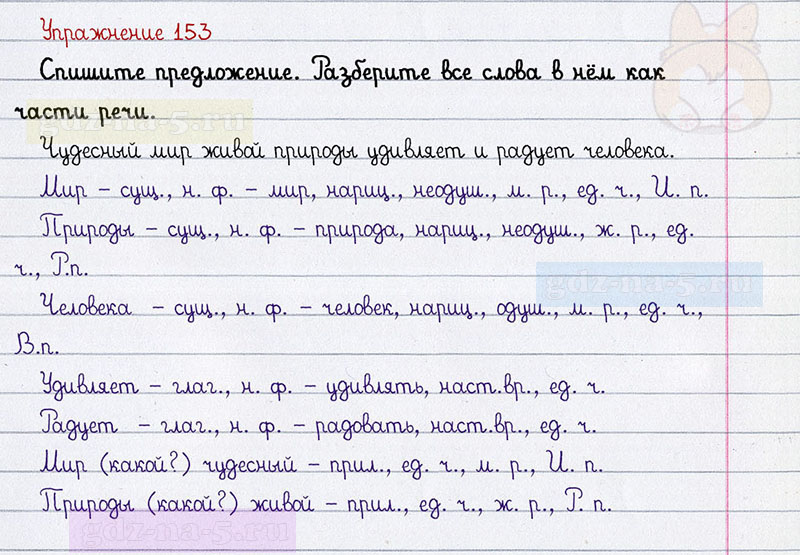 Упражнение 153
Спишите предложение. Разберите все слова в нём как
части речи.
gdz-na-5.ru
Чудесный мир живой природы удивляет и радует человека.
Мир – сущ., н. ф. – мир, нариц., неодуш., м. р., ед. ч., И. п.
Природы – сущ., н. ф. – природа, нариц., неодуш., ж. р., ед.
ч., Р.п.
gdz-na-5.ru
Человека – сущ., н. ф. – человек, нариц., одуш., м. р., ед. ч.,
В.п.
Удивляет – глаг., н. ф. – удивлять, наст.вр., ед. ч.
Радует – глаг., н. ф. – радовать, наст.вр., ед. ч.
Мир (какой?) чудесный – прил., ед. ч., м. р., И. п.
Природы (какой?) живой – прил., ед. ч., ж. р., Р. п.
gdz-na-5.ru